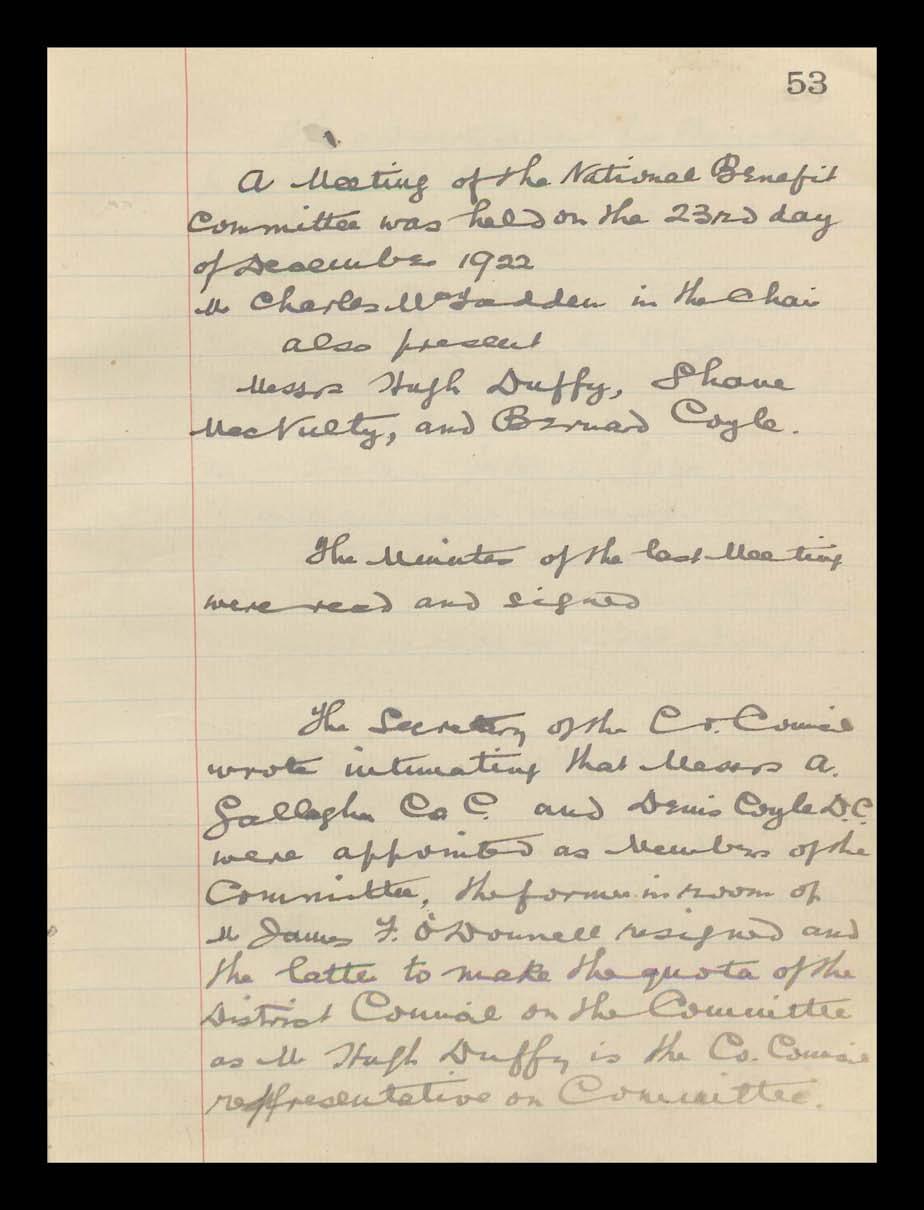 53
A Meeting of the National Benefit
Committee was held on the 23rd day
of December 1922
Mr Charles McFadden in the Chair
also present
Messrs Hugh Duffy, Shane
MacNulty, and Bernard Coyle.
The Minutes of the last Meeting
were read and signed
The Secretary of the Co. Council
wrote intimating that Messrs A.
Gallagher Co C. and Denis Coyle D.C.
were appointed as Members of the
Committee, the former in room of
Mr James F. O'Donnell resigned and
the latter to make the quota of the
District Council on the Committee
as Mr Hugh Duffy is the Co. Council
representative on Committee.